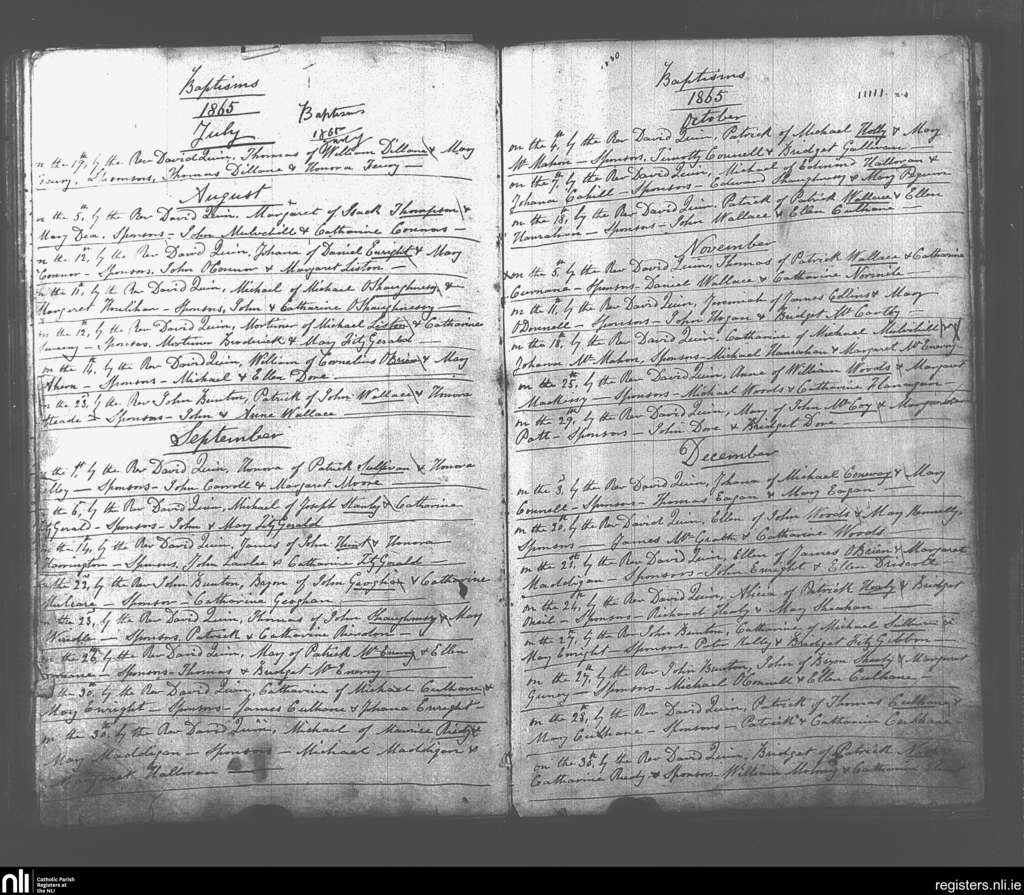 Baptisms
1865
July
Baptism
1865
on the 17th, by the Rev David Quin, Thomas of William Dillane & Mary
Sponsors, Thomas Dillane & Honora
August
on the 5th, by the Rev David Quin, Margaret of Isack Thompson &
Mary Dea, Sponsors - John Mulvihill & Catharine Connors -
on the 12, by the Rev David Quin, Johana of Daniel Enright & Mary
Connor - Sponsors, John O'Connor & Margaret Liston -
on the 11, by the Rev David Quin, Michael of Michael O'Shaughnessy &
Margaret Houlihan - Sponsors, John & Catharine O'Shaughnessy -
on the 12, by the Rev David Quin, Mortimer of Michael Liston & Catharine
- Sponsors, Mortimer Broderick & Mary FitzGerald -
on the 16th, by the Rev David Quin, William of Cornelius O'Brien & Mary
Ahern - Sponsors - Michael & Ellen Dore
on the 23, by the Rev John Bunton, Patrick of John Wallace & Honora
Meade - Sponsors - John & Anne Wallace
September
on the 1st, by the Rev David Quin, Honora of Patrick Sullivan & Honora
- Sponsors - John Carroll & Margaret Moore
on the 6, by the Rev David Quin, Michael of Joseph Stanly & Catharine
FitzGerald - Sponsors - John & Mary FitzGerald
on the 14, by the Rev David Quin, James of John & Honora
Harrington - Sponsors, John Lawlee & Catharine FitzGerald -
on the 22nd, by the Rev John Bunton, of John Geoghan & Catharine
Mulcare - Sponsors - Catharine Geoghan
on the 23, by the Rev David Quin, Thomas of John Shaughnessy & Mary
Windle - Sponsors, Patrick & Catharine Riordon -
on the 26, by the Rev David Quin, Mary of Patrick McEnerry & Ellen
- Sponsors - Thomas & Bridget McEnerry -
on the 30, by the Rev David Quin, Catharine of Michael Culhane &
Mary Enright - Sponsors - James Culhane & Johana Enright -
on the 30th, by the Rev David Quin, Michael of Maurice Reidy &
Mary Maddigan - Sponsors - Michael Maddigan &
Margaret Halloran
Baptisms
1865
October
on the 4th, by the Rev David Quin, Patrick of Michael Holly & Mary
McMahon - Sponsors, Timothy Connell & Bridget Gallivan -
on the 7th, by the Rev David Quin, Michael of Edmund Halloran &
Johana Cahill - Sponsors - Edmund Shaughnessy & Mary
on the 18, by the Rev David Quin, Patrick of Patrick Wallace & Ellen
Hanrahan - Sponsors - John Wallace & Ellen Culhane -
November
on the 5th, by the Rev David Quin, Thomas of Patrick Wallace & Catharine
- Sponsors - Daniel Wallace & Catharine
on the 11, by the Rev David Quin, Jeremiah of James Collins & Mary
O'Donnell - Sponsors - John Hogan & Bridget McCarthy -
on the 18, by the Rev David Quin, Catharine of Michael Mulvihill &
Johana McMahon, Sponsors - Michael Hanrahan & Margaret McEnerry
on the 25th, by the Rev David Quin, Anne of William Woods & Margaret
Mackessy - Sponsors - Michael Woods & Catharine Flannagan -
on the 29th, by the Rev David Quin, Mary of John McCoy & Margaret
Patt - Sponsors - John Dore & Bridget Dore
December
on the 3, by the Rev David Quin, Johana of Michael Conway & Mary
Connell - Sponsors - Thomas Eagan & Mary Eagan -
on the 20, by the Rev David Quin, Ellen of John Woods & Mary Honnelly,
Sponsors - James McGrath & Catharine Woods
on the 21st, by the Rev David Quin, Ellen of James O'Brien & Margaret
Maddigan - Sponsors - John Enright & Ellen
on the 24, by the Rev David Quin, Alicia of Patrick Healy & Bridget
Neil - Sponsors - Richard Healy & Mary Sheehan -
on the 27, by the Rev John Bunton, Catharine of Michael Sullivan &
Mary Enright - Sponsors Peter Kelly & Bridget FitzGibbon -
on the 27, by the Rev John Bunton, John of Sheehy & Margaret
- Sponsors - Michael O'Connell & Ellen Culhane
on the 28, by the Rev David Quin, Patrick of Thomas Culhane &
Mary Culhane - Sponsors - Patrick & Catharine Culhane
on the 30th, by the Rev David Quin, Bridget of Patrick
Catharine Reidy & Sponsors - William & Catharine
nli
Catholic Parish
Registers at
the NLI
registers.nli.ie